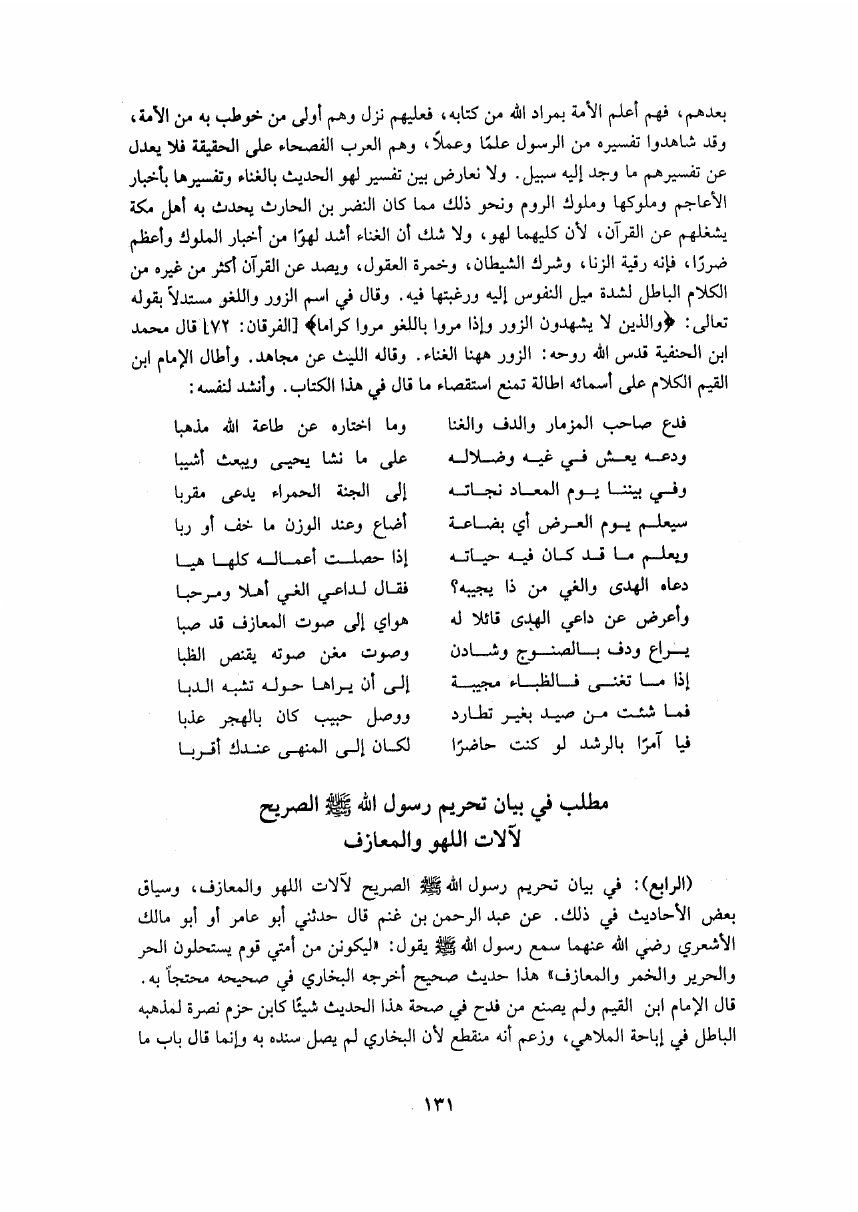 بعدهم، فهم أعلم الأمة بمراد الله من كتابه، فعليهم نزل وهم أولى من خوطب به من الأمة،
وقد شاهدوا تفسيره من الرسول علمًا وعملاً، وهم العرب الفصحاء على الحقيقة فلا يعدل
عن تفسيرهم ما وجد إليه سبيل. ولا نعارض بين تفسير لهو الحديث بالغناء وتفسيرها بأخبار
الأعاجم وملوكها وملوك الروم ونحو ذلك مما كان النضر بن الحارث يحدث به أهل مكة
يشغلهم عن القرآن، لأن كليهما لهو، ولا شك أن الغناء أشد لهوًا من أخبار الملوك وأعظم
ضررًا، فإنه رقية الزنا، وشرك الشيطان، وخمرة العقول، ويصد عن القرآن أكثر من غيره من
الكلام الباطل لشدة ميل النفوس إليه ورغبتها فيه. وقال في اسم الزور واللغو مستدلاً بقوله
تعالى: ﴿والذين لا يشهدون الزور وإذا مروا باللغو مروا كراما﴾ [الفرقان: ٧٢] قال محمد
ابن الحنفية قدس الله روحه: الزور ههنا الغناء. وقاله الليث عن مجاهد. وأطال الإمام ابن
القيم الكلام على أسمائه اطالة تمنع استقصاء ما قال في هذا الكتاب. وأنشد لنفسه:
فدع صاحب المزمار والدف والغنا وما اختاره عن طاعة الله مذهبا
ودعه يعش في غيه وضلاله على ما نشا يحيى ويبعث أشيبا
وفي بيننا يوم المعاد نجاته إلى الجنة الحمراء يدعى مقربا
سيعلم يوم العرض أي بضاعة أضاع وعند الوزن ما خف أو ربا
ويعلم ما قد كان فيه حياته إذا حصلت أعماله كلها هبا
دعاه الهدى والغي من ذا يجيبه؟ فقال لداعي الغي أهلا ومرحبا
وأعرض عن داعي الهدى قائلا له هواي إلى صوت المعازف قد صبا
يراع ودف بالصنوج وشادن وصوت مغن صوته يقنص الظبا
إذا ما تغنى فالظباء مجيبة إلى أن يراها حوله تشبه الدبا
فما شئت من صيد بغير تطارد ووصل حبيب كان بالهجر عذبا
فيا آمرًا بالرشد لو كنت حاضرًا لكان إلى المنهى عندك أقربا
مطلب في بيان تحريم رسول الله ﷺ الصريح
لآلات اللهو والمعازف
(الرابع): في بيان تحريم رسول الله ﷺ الصريح لآلات اللهو والمعازف، وسياق
بعض الأحاديث في ذلك. عن عبد الرحمن بن غنم قال حدثني أبو عامر أو أبو مالك
الأشعري رضي الله عنهما سمع رسول الله ﷺ يقول: «ليكونن من أمتي قوم يستحلون الحر
والحرير والخمر والمعازف» هذا حديث صحيح أخرجه البخاري في صحيحه محتجاً به.
قال الإمام ابن القيم ولم يصنع من قدح في صحة هذا الحديث شيئًا كابن حزم نصرة لمذهبه
الباطل في إباحة الملاهي، وزعم أنه منقطع لأن البخاري لم يصل سنده به وإنما قال باب ما
١٣١